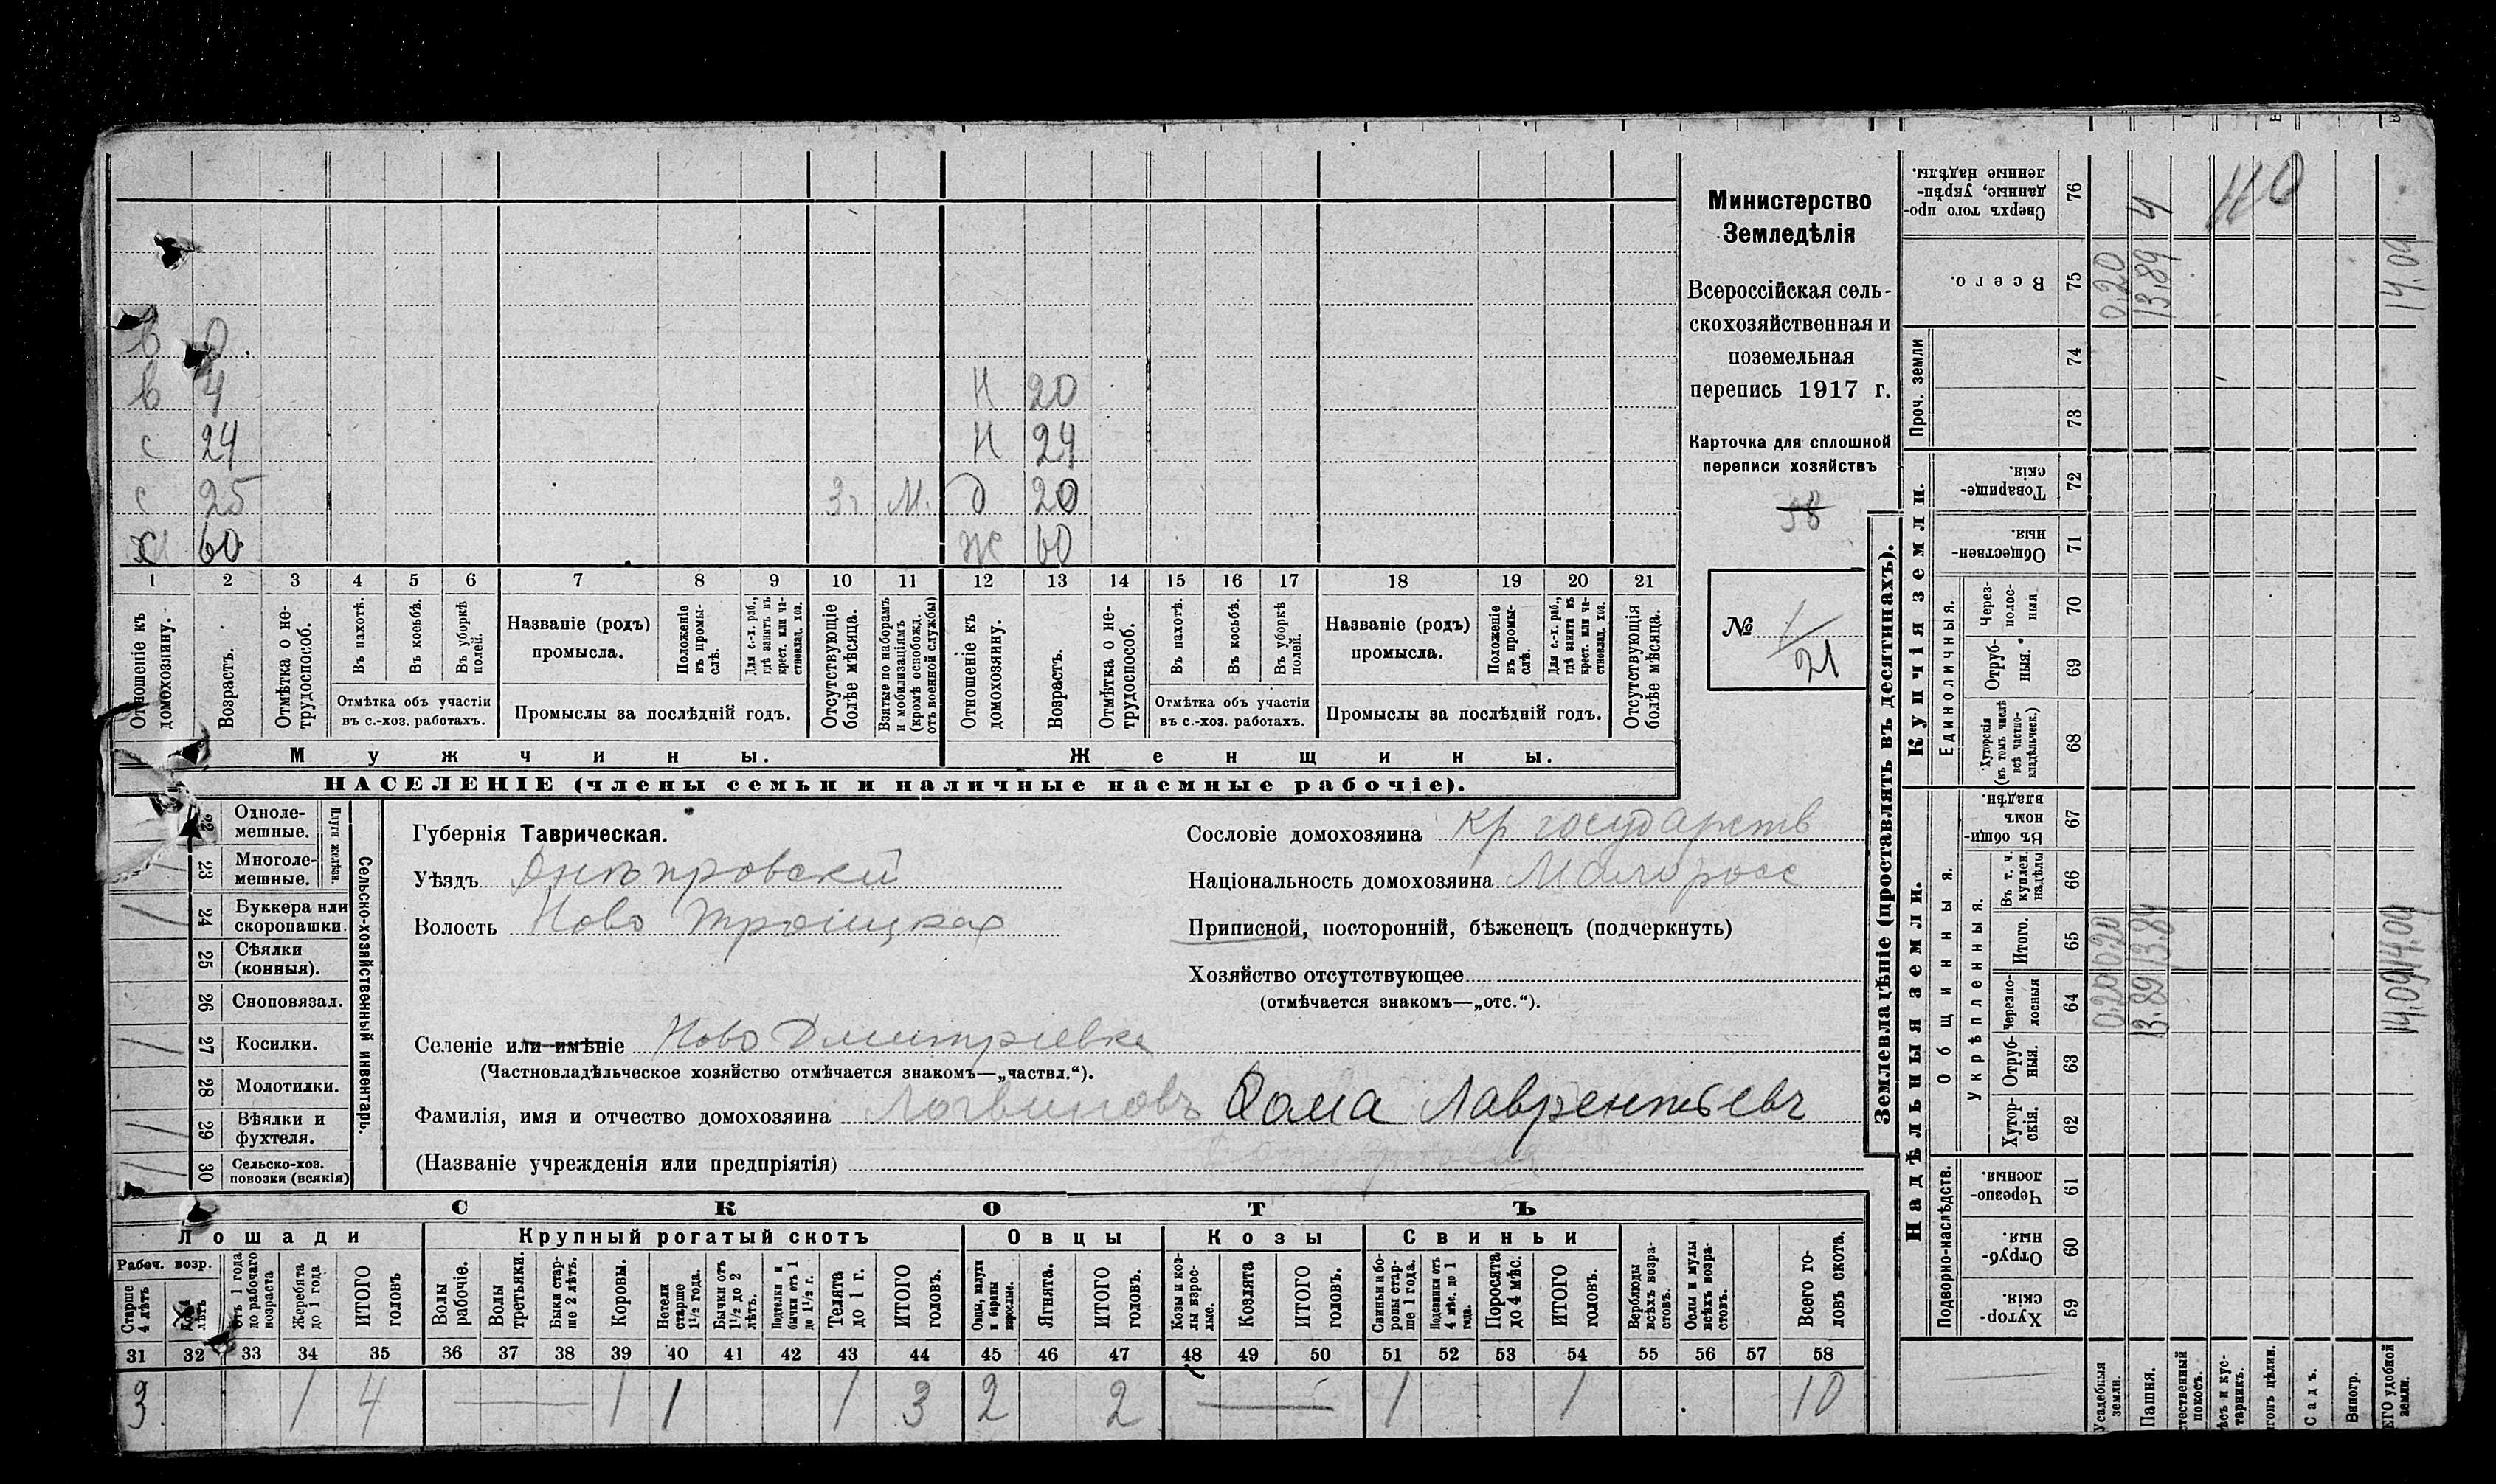 в 0
в 4 Н 20
с 24 Н 24
с 25 3г М. д 20
Х 60 Ж 60
1 2 3 4 5 6 7 8 9 10 11 12 13 14 15 16 17 18 19 20 21
Отношеніе къ домохозяину.
Возрастъ.
Отмѣтка о не-трудоспособ.
Въ пахотѣ.
Въ косьбѣ.
Въ уборкѣ полей.
Отмѣтка объ участіи въ с.-хоз. работахъ.
Названіе (родъ) промысла.
Положеніе въ промы-слѣ.
Для с.-х. раб., гдѣ занятъ въ крест. или ча-стновлад. хоз.
Промыслы за послѣдній годъ.
Отсутствующіе болѣе мѣсяца.
Взятые по наборамъ и мобилизаціямъ (кромѣ освобожд. отъ военной службы)
Отношеніе къ домохозяину.
Возрастъ.
Отмѣтка о не-трудоспособ.
Въ пахотѣ.
Въ косьбѣ.
Въ уборкѣ полей.
Отмѣтка объ участіи въ с.-хоз. работахъ.
Названіе (родъ) промысла.
Положеніе въ промы-слѣ.
Для с.-х. раб., гдѣ занята въ крест. или ча-стновлад. хоз.
Промыслы за послѣдній годъ.
Отсутствующія болѣе мѣсяца.
Мужчины. Женщины.
НАСЕЛЕНІЕ (члены семьи и наличные наемные рабочіе).
Министерство
Земледѣлія
Всероссійская сель-
скохозяйственная и
поземельная
перепись 1917 г.
Карточка для сплошной
переписи хозяйствъ
98
№ 1/21
Сельско-хозяйственный инвентарь.
Плуги желѣзн.
22 Одноле-мешные.
23 Многоле-мешные.
24 Буккера или скоропашки.
25 Сѣялки (конныя).
26 Сноповязал.
27 Косилки.
28 Молотилки.
29 Вѣялки и фухтеля.
30 Сельско-хоз. повозки (всякія)
Губернія Таврическая.
Уѣздъ Днѣпровский
Волость Ново Троицкая
Селеніе или имѣніе Ново Дмитріевка
(Частновладѣльческое хозяйство отмѣчается знакомъ—„частвл.“).
Фамилія, имя и отчество домохозяина Логвиновъ Фома Лаврентьевъ
(Названіе учрежденія или предпріятія)
Сословіе домохозяина кр государств
Національность домохозяина Малоросс
Приписной, посторонній, бѣженецъ (подчеркнуть)
Хозяйство отсутствующее
(отмѣчается знакомъ—„отс.“).
СКОТЪ
Лошади Крупный рогатый скотъ Овцы Козы Свиньи
Рабоч. возр.
Старше 4 лѣтъ
лѣтъ
Отъ 1 года до рабочаго возраста
Жеребята до 1 года
ИТОГО головъ
Волы рабочіе.
Волы третьяки.
Быки стар-ше 2 лѣтъ.
Коровы.
Нетели старше 1½ года.
Бычки отъ 1½ до 2 лѣтъ.
Подтелки и бычки отъ 1 до 1½ г.
Телята до 1 г.
ИТОГО головъ.
Овцы, валухи и бараны взрослые.
Ягнята.
ИТОГО головъ.
Козы и коз-лы взрос-лые.
Козлята
ИТОГО головъ.
Свиньи и бо-ровы стар-ше 1 года.
Подсвинки отъ 4 мѣс. до 1 года.
Поросята до 4 мѣс.
ИТОГО головъ.
Верблюды всѣхъ возра-стовъ.
Ослы и мулы всѣхъ возра-стовъ.
Всего го-ловъ скота.
31 32 33 34 35 36 37 38 39 40 41 42 43 44 45 46 47 48 49 50 51 52 53 54 55 56 57 58
3 1 4 — 1 1 1 3 2 2 — 1 1 10
Землевладѣніе (проставлять въ десятинахъ).
Надѣльныя земли. Купчія земли.
Проч. земли
Подворно-наслѣдств.
Общинныя.
Укрѣпленныя.
Единоличныя.
59 Хутор-скія.
60 Отруб-ныя.
61 Черезпо-лосныя.
62 Хутор-скія.
63 Отруб-ныя.
64 Черезпо-лосныя
65 Итого.
66 Въ т. ч. куплен. надѣлы
67 Въ общи-номъ владѣн.
68 Хуторскія (въ томъ числѣ всѣ частно-владѣльческ.)
69 Отруб-ныя.
70 Через-полос-ныя
71 Обществен-ныя.
72 Товарище-скія.
73
74
75 Всего.
76 Сверхъ того про-данные, укрѣп-ленные надѣлы.
Усадебныя земли. 0.20 0.20 0.20
Пашня. 13.89 13.89 13.89 4
покосъ.
тарникъ.
Садъ.
Виногр.
удобной земли. 14.09 14.09 14.09